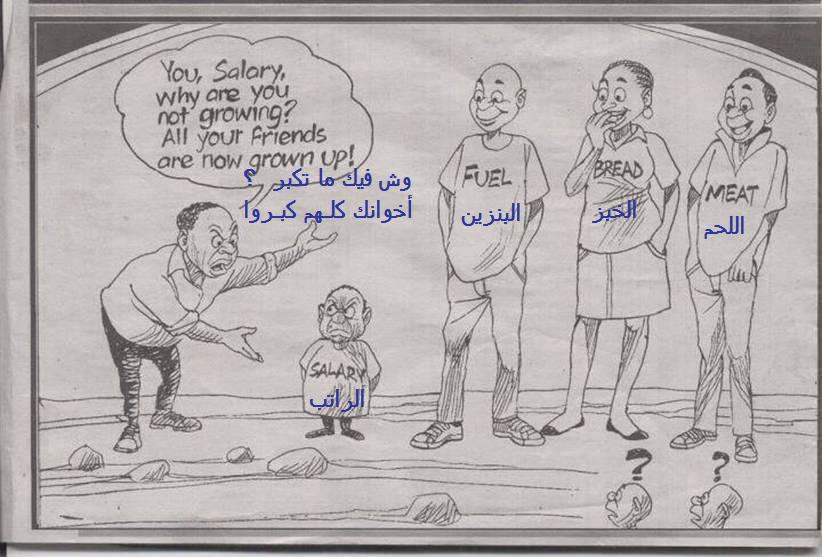 You, Salary,
why are you
not growing?
All your friends
are now grown up!
وش فيك ما تكبر ؟
أخوانك كلـهم كبـروا
FUEL
البنزين
BREAD
الخبز
MEAT
اللحم
SALARY
الراتب
?
?